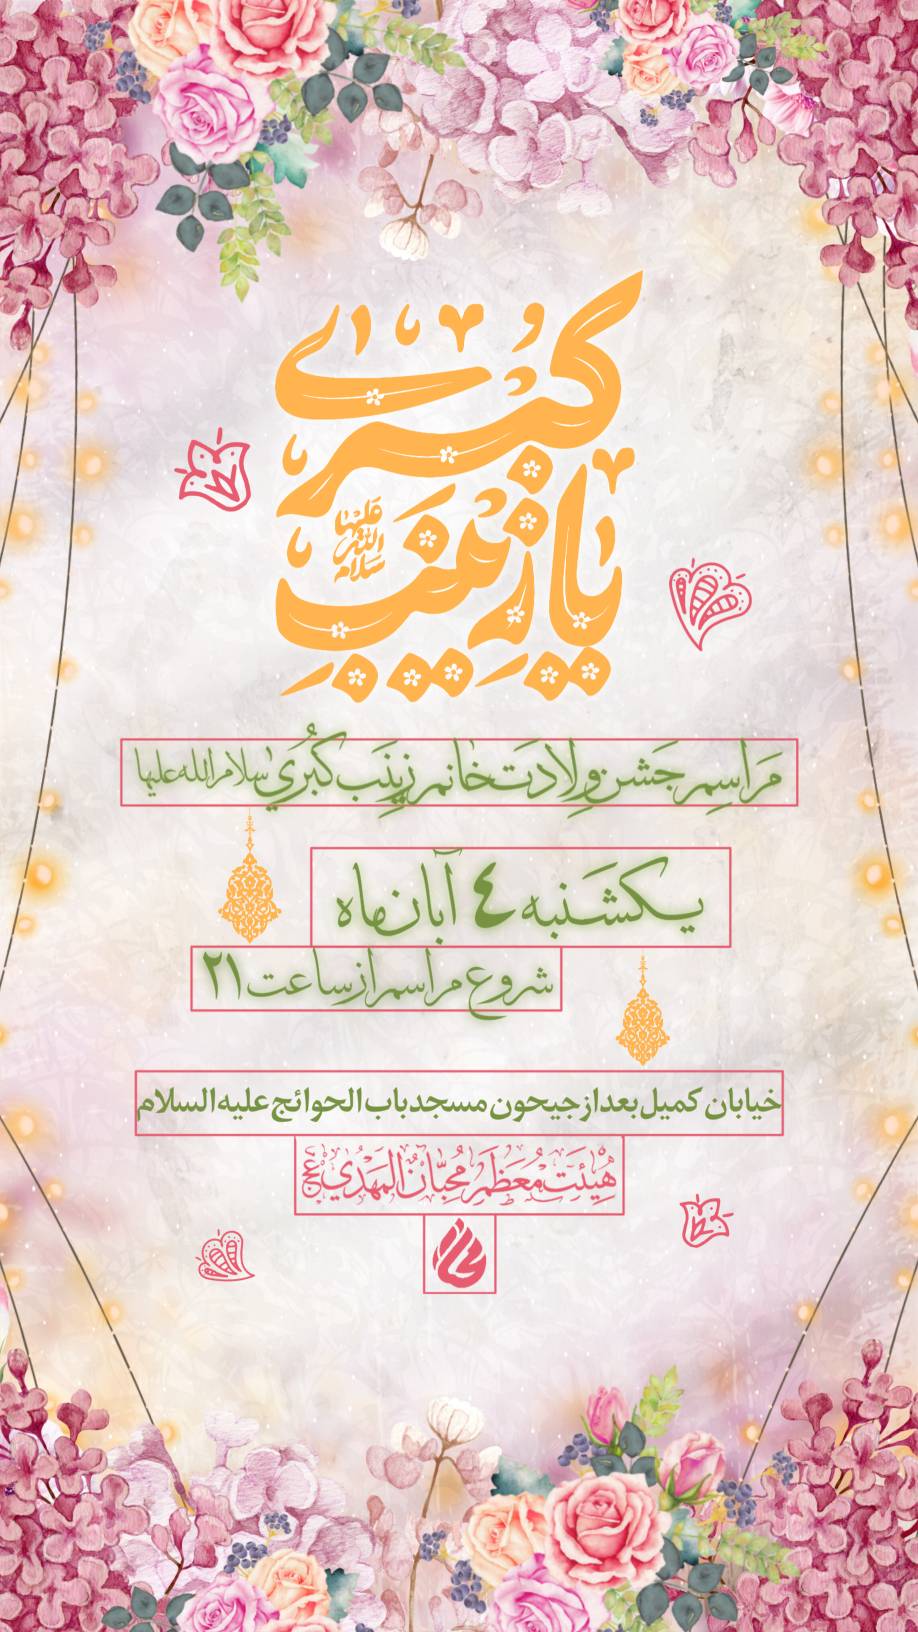 یا زینب کبری
سلام الله علیها
مراسم جشن ولادت خانم زینب کبری سلام الله علیها
یکشنبه ٤ آبان ماه
شروع مراسم از ساعت ۲۱
خیابان کمیل بعد از جیحون مسجد باب الحوائج علیه السلام
هیئت معظم محبان المهدی عج